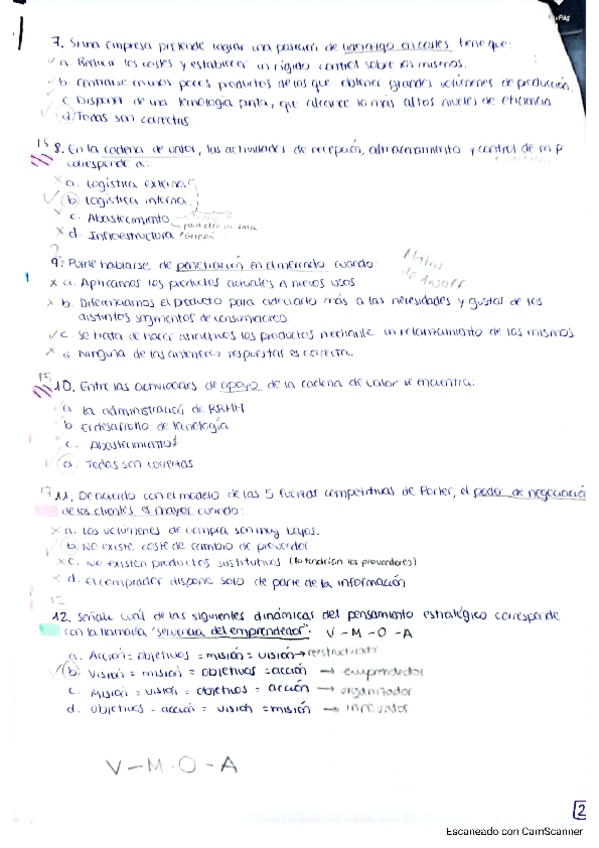 7. Si una empresa pretende lograr una posición de liderazgo en costes tiene que:
a. Reducir los costes y establecer un rígido control sobre los mismos.
b. Centrarse en unos pocos productos de los que obtener grandes volúmenes de producción.
c. Disponer de una tecnología punta, que alcance los más altos niveles de eficiencia
d. Todas son correctas
15
8. En la cadena de valor, las actividades de recepción, almacenamiento y control de m.p
corresponde a:
a. Logística externa
b. Logística interna
c. Abastecimiento
d. Infraestructura
9. Puede hablarse de penetración en el mercado cuando:
Matriz
de Ansoff
a. Aplicamos los productos actuales a nuevos usos
b. Diferenciamos el producto para adecuarlo más a las necesidades y gustos de los
distintos segmentos de consumidores
c. Se trata de hacer atractivos los productos mediante un relanzamiento de los mismos
d. Ninguna de las anteriores respuestas es correcta.
15
10. Entre las actividades de apoyo de la cadena de valor se encuentra:
a. La administración de RRHH
b. El desarrollo de tecnología
c. Abastecimiento
d. Todas son correctas
17
11. De acuerdo con el modelo de las 5 fuerzas competitivas de Porter, el poder de negociación
de los clientes es mayor cuando:
a. Los volúmenes de compra son muy bajos.
b. No existe coste de cambio de proveedor
c. No existen productos sustitutivos (lo tendrían los proveedores)
d. El comprador dispone solo de parte de la información
12
12. Señale cuál de las siguientes dinámicas del pensamiento estratégico corresponde
con la llamada "secuencia del emprendedor": V-M-O-A
a. Acción = objetivos = misión = visión → reestructurador
b. Visión = misión = objetivos = acción → emprendedor
c. Misión = visión = objetivos = acción → organizador
d. Objetivos - acción = visión = misión → innovador
V-M-O-A
2
Escaneado con CamScanner